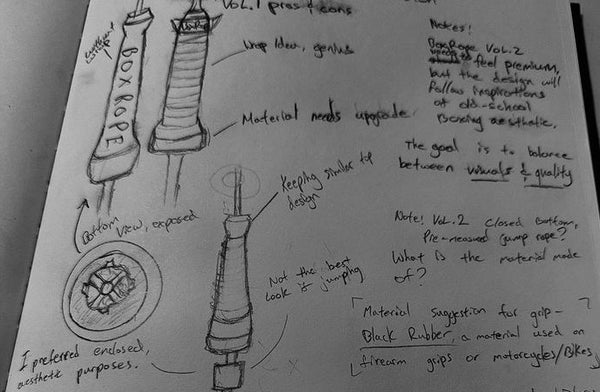 VOL.1 pros & cons
BOXROPE
Wrap Idea, genius
Material needs upgrade.
Bottom
view, exposed
I preferred enclosed,
aesthetic purposes.
Keeping similar
design
Not the best
look if jumping
Notes!
BoxRope VOL.2
feel premium,
but the design will
follow inspirations
of old-school
Boxing aesthetic.
The goal is to balance
between visuals & quality
Note! Vol.2 closed bottom,
Pre-measured jump rope?
What is the material made
of?
Material suggestion for grip-
Black Rubber, a material used on
firearm grips or motorcycles/Bikes